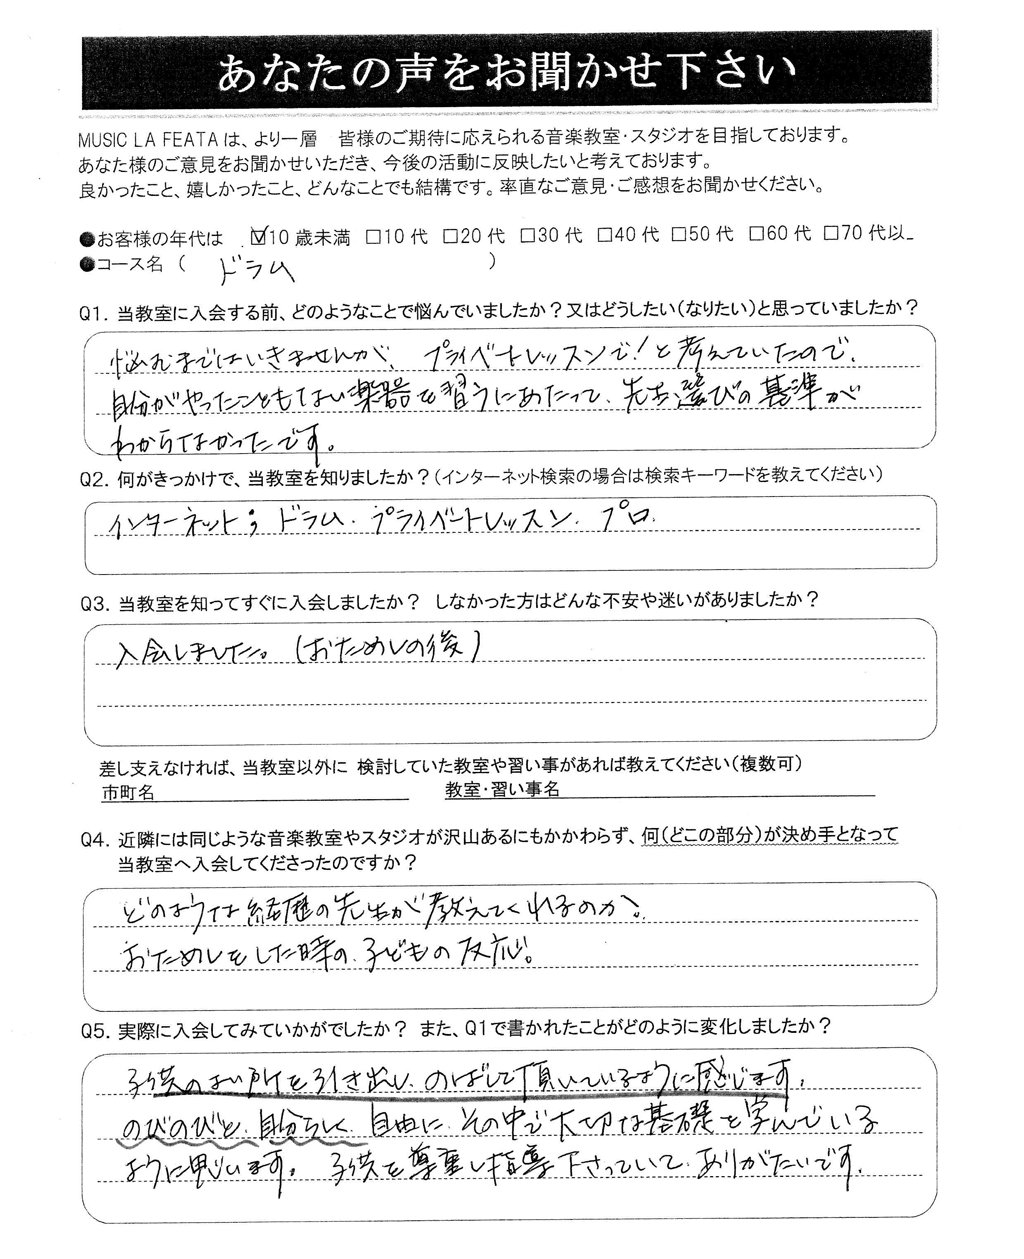 あなたの声をお聞かせ下さい
MUSIC LA FEATA は、より一層　皆様のご期待に応えられる音楽教室・スタジオを目指しております。
あなた様のご意見をお聞かせいただき、今後の活動に反映したいと考えております。
良かったこと、嬉しかったこと、どんなことでも結構です。率直なご意見・ご感想をお聞かせください。
●お客様の年代は ☑10歳未満 □10代 □20代 □30代 □40代 □50代 □60代 □70代以
●コース名（ ドラム ）
Q1. 当教室に入会する前、どのようなことで悩んでいましたか？又はどうしたい（なりたい）と思っていましたか？
悩むまではいきませんが、プライベートレッスンで！と考えていたので、
自分がやったこともない楽器を習うにあたって、先生選びの基準が
わからなかったです。
Q2. 何がきっかけで、当教室を知りましたか？（インターネット検索の場合は検索キーワードを教えてください）
インターネット； ドラム．プライベートレッスン．プロ．
Q3. 当教室を知ってすぐに入会しましたか？　しなかった方はどんな不安や迷いがありましたか？
入会しました。（おためしの後）
差し支えなければ、当教室以外に 検討していた教室や習い事があれば教えてください（複数可）
市町名　教室・習い事名
Q4. 近隣には同じような音楽教室やスタジオが沢山あるにもかかわらず、何（どこの部分）が決め手となって
当教室へ入会してくださったのですか？
どのような経歴の先生が教えてくれるのか。
おためしをした時の、子どもの反応。
Q5. 実際に入会してみていかがでしたか？ また、Q1で書かれたことがどのように変化しましたか？
子供のよい所を引き出し、のばして頂いているように感じます。
のびのびと、自分らしく、自由に、その中で大切な基礎を学んでいる
ように思います。子供を尊重し指導下さっていて、ありがたいです。